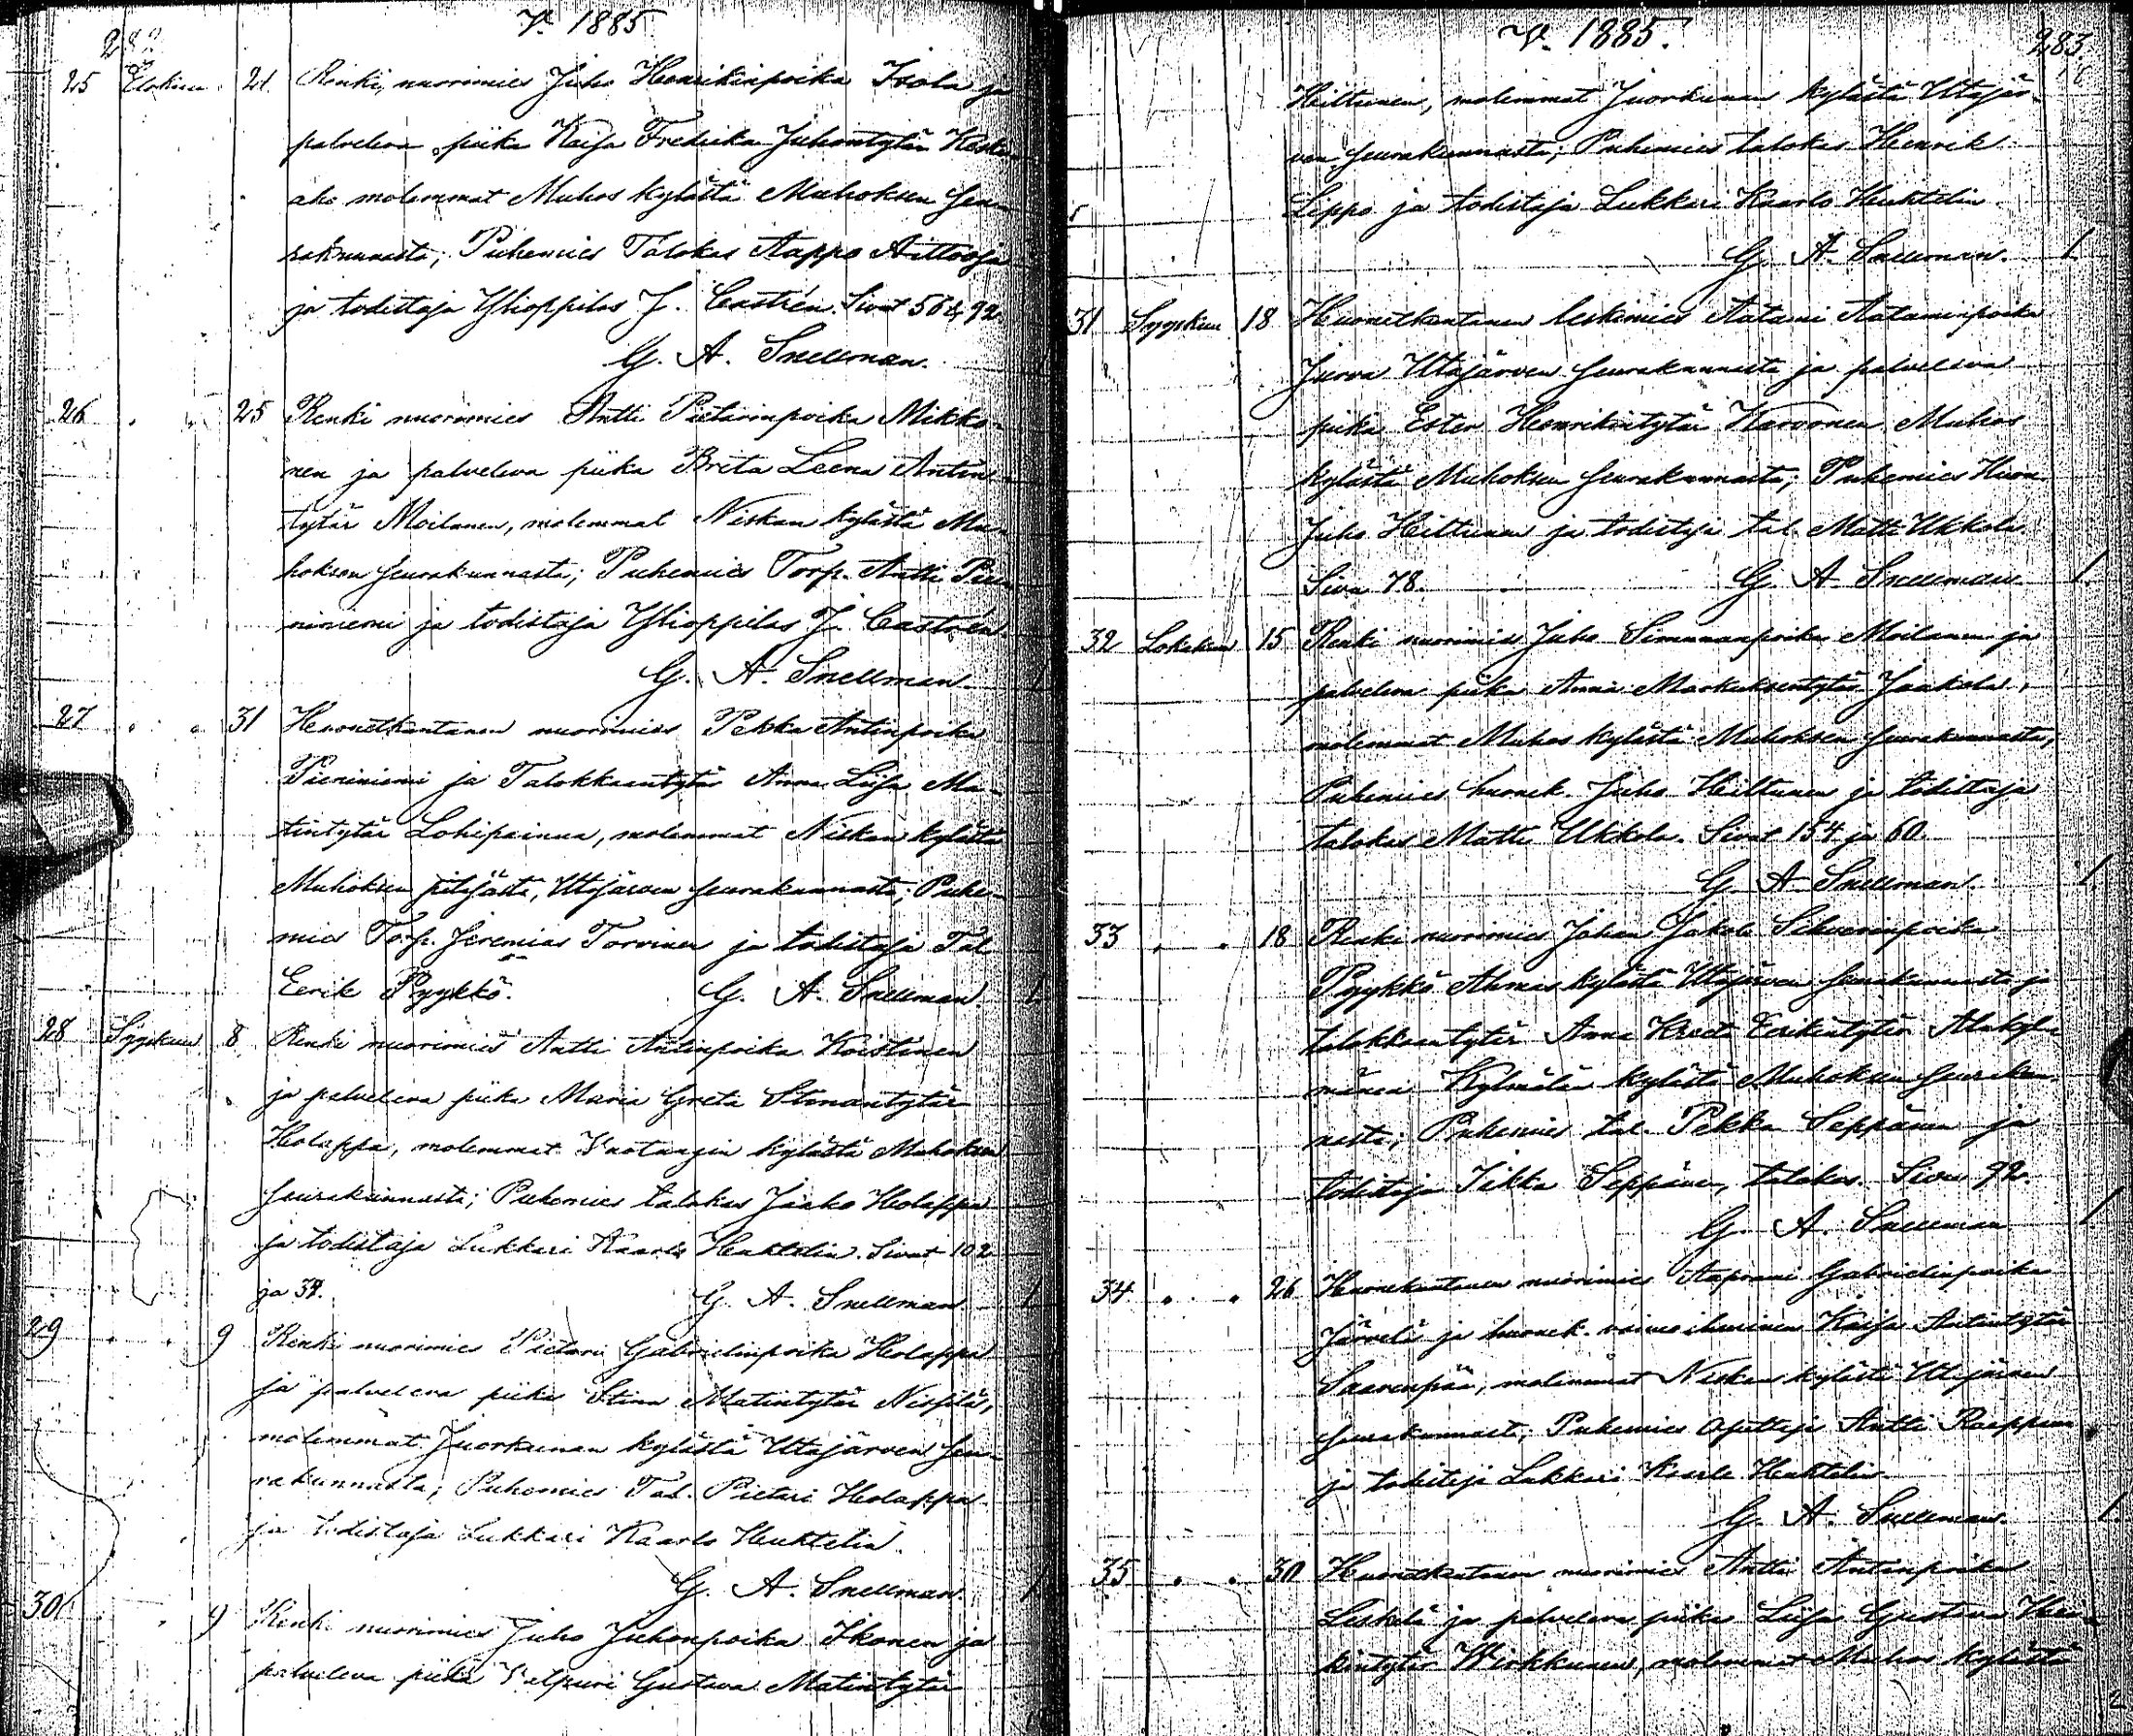 282
V. 1885
25 Elokuu 21 Renki, nuorimies Juho Henrikinpoika Isola ja
palveleva piika Kaisa Fredrika Juhontytär Koski-
aho molemmat Muhos kylästä Muhoksen Seu-
rakunnasta; Puhemies Talokas Aappo Aittooja
ja todistaja Ylioppilas J. Castrén. Sivat 56 & 92.
G. A. Snellman.
26 25 Renki nuorimies Antti Pietarinpoika Mikko-
nen ja palveleva piika Brita Leena Antin-
tytär Moilanen, molemmat Niskan kylästä Mu-
hoksen Seurakunnasta; Puhemies Torp. Antti
niniemi ja todistaja Ylioppilas J. Castrén.
G. A. Snellman.
27 31 Huonetkantanen nuorimies Pekka Antinpoika
Pieniniemi ja Talokkaantytär Anna Liisa Ma-
tintytär Lohipainua, molemmat Niskan kylästä
Muhoksen pitäjästä, Utajärven Seurakunnasta; Puhe-
mies Torp. Jeremias Torvinen ja todistaja Tal.
Eerik Pyykkö. G. A. Snellman 1
28 Syyskuu 8 Renki nuorimies Antti Antinpoika Koistinen
ja palveleva piika Maria Greta Simontytär
Holappa, molemmat kylästä Muhoksen
Seurakunnasta; Puhemies talokas Jaako Holappa
ja todistaja Lukkari Kaarlo Huktelin. Sivat 102
ja 34. G. A. Snellman 1
29 9 Renki nuorimies Pietari Gabrielinpoika Holappa
ja palveleva piika Stina Matintytär Nispilä,
molemmat Juorkunan kylästä Utajärven Seu-
rakunnasta; Puhemies Tal. Pietari Holappa
ja todistaja Lukkari Kaarlo Huktelin.
G. A. Snellman. 1
30 9 Renki nuorimies Juho Juhonpoika Ikonen ja
palveleva piika Valpuri Gustava Matintytär
V. 1885.
283.
Hiltunen, molemmat Juorkunan kylästä Utajär-
ven Seurakunnasta; Puhemies talokas Henrik
Lippo ja todistaja Lukkari Kaarlo Huktelin.
G. A. Snellman. 1
31 Syyskuu 18 Huonetkantanen leskimies Aatami Aataminpoika
Jurva Utajärven Seurakunnasta ja palveleva
piika Ester Henrikintytär Karvonen Muhos
kylästä Muhoksen Seurakunnasta; Puhemies Huon.
Juho Hiltunen ja todistaja tal. Matti Ukkola.
Sivu 78. G. A. Snellman 1
32 Lokakuu 15 Renki nuorimies Juho Simunanpoika Moilanen ja
palveleva piika Anna Markuksentytär Jaakola,
molemmat Muhos kylästä Muhoksen Seurakunnasta,
Puhemies huonek. Juho Hiltunen ja todistaja
talokas Matti Ukkola. Sivat 154 ja 60.
G. A. Snellman. 1
33 18 Renki nuorimies Johan Jakob
Pyykkö Ahmas kylästä Utajärven Seurakunnasta ja
talokkaantytär Anna Kreeta Eerikintytär
Kylmälän kylästä Muhoksen Seurakun-
nasta; Puhemies tal. Pekka Seppänen ja
todistaja Iikka Seppänen, talokas. Sivu 92.
G. A. Snellman 1
34 26 Huonekantanen nuorimies Aaprami Gabrielinpoika
Järvelä ja huonek. vaimoihminen Kaisa Antintytär
Saarenpää, molemmat Niskan kylästä Utajärven
Seurakunnasta, Puhemies Antti
ja todistaja Lukkari Kaarlo Huktelin.
G. A. Snellman. 1.
35 30 Huonekantanen nuorimies Antti Antinpoika
Leskelä ja palveleva piika Liisa Gustava
kintytär Wirkkunen, molemmat Muhos kylästä